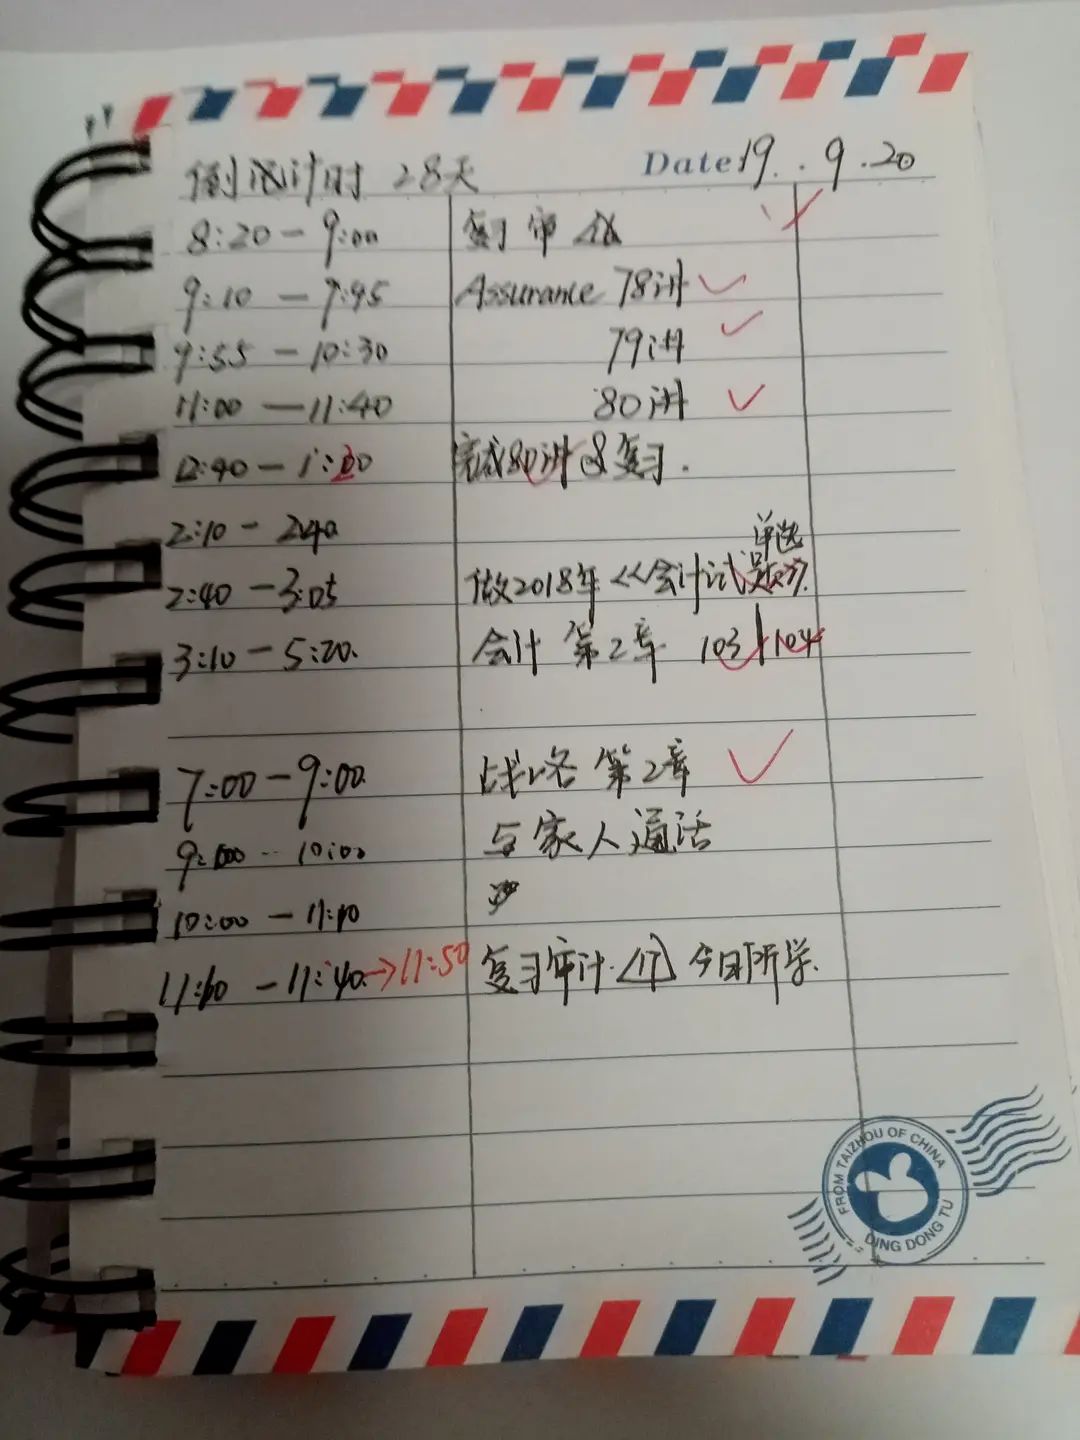 倒计时 28天 Date 19.9.20
8:20-9:00 复习审
9:10-9:45 Assurance 78讲
9:55-10:30 79讲
11:00-11:40 80讲
12:40-1: 完成80讲 复习.
2:10-2:40
单选
2:40-3:05 做2018年《会计试题》
3:10-5:20. 会计 第2章 103 104
7:00-9:00. 战略 第2章
9:00-10:00 与家人通话
10:00-11:10
11:10-11:40→11:50 复习审计. 今日所学.
FROM TAIZHOU OF CHINA
DING DONG TU